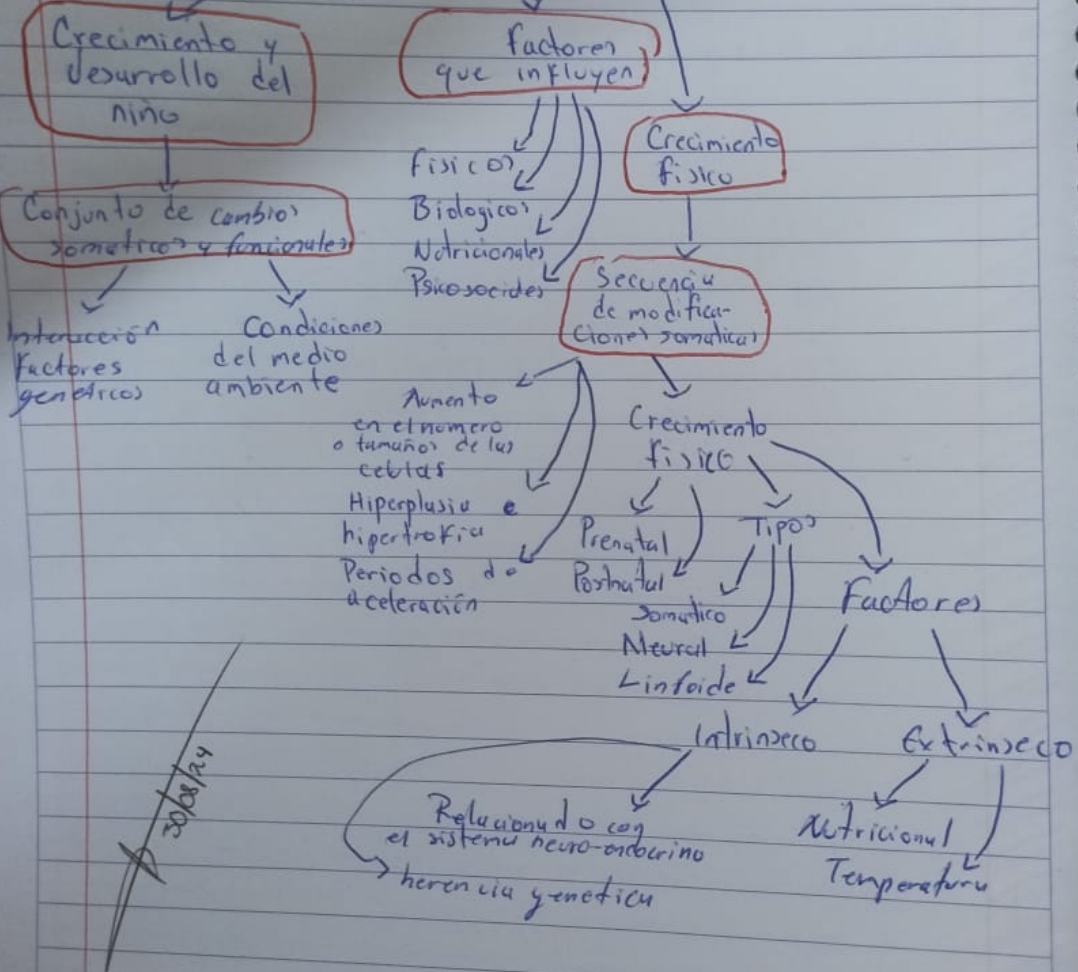 Crecimiento y
desarrollo del
niño
Conjunto de cambios
somaticos y funcionales
Interacción
Factores
geneticos
Condiciones
del medio
ambiente
Factores
que influyen
Fisicos
Biologicos
Nutricionales
Psicosociales
Crecimiento
fisico
Secuencia
de modifica-
ciones somaticas
Aumento
en el numero
o tamaños de las
celulas
Hiperplasia e
hipertrofia
Periodos de
aceleración
Crecimiento
fisico
Prenatal
Postnatal
Tipos
Somatico
Neural
Linfoide
Factores
Intrinseco
Extrinseco
Relacionado con
el sistema neuro-endocrino
herencia y genetica
Nutricional
Temperatura
30/08/24